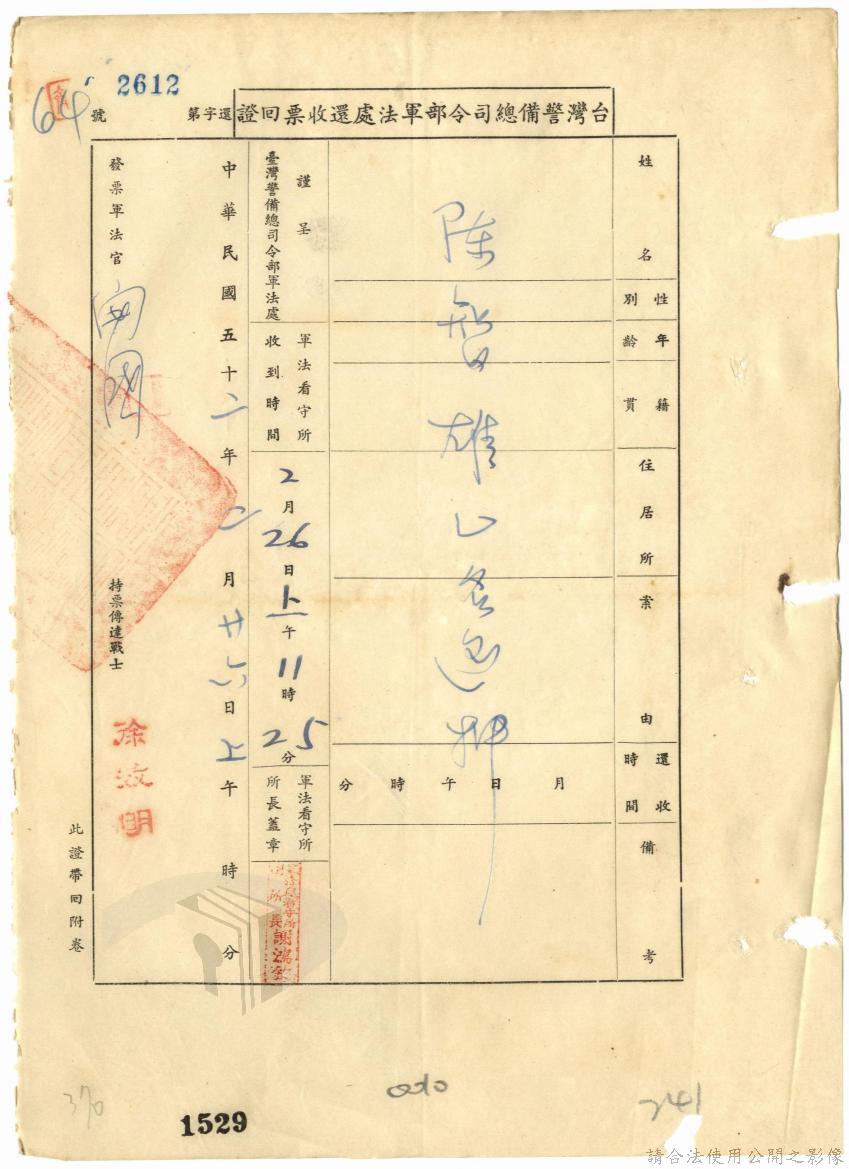 2612
台灣警備總司令部軍法處還收票回證
還字第
號
64
姓名
性別
年齡
籍貫
住居所
案由
還收時間
備考
陳智雄乙名還押
月日午時分
謹呈
臺灣警備總司令部軍法處
軍法看守所
收到時間
2月26日上午11時25分
軍法看守所
所長蓋章
所長謝鴻
中華民國五十二年二月廿六日上午時分
發票軍法官
持票傳達戰士
徐汶明
此證帶回附卷
370
1529
241
請合法使用公開之影像